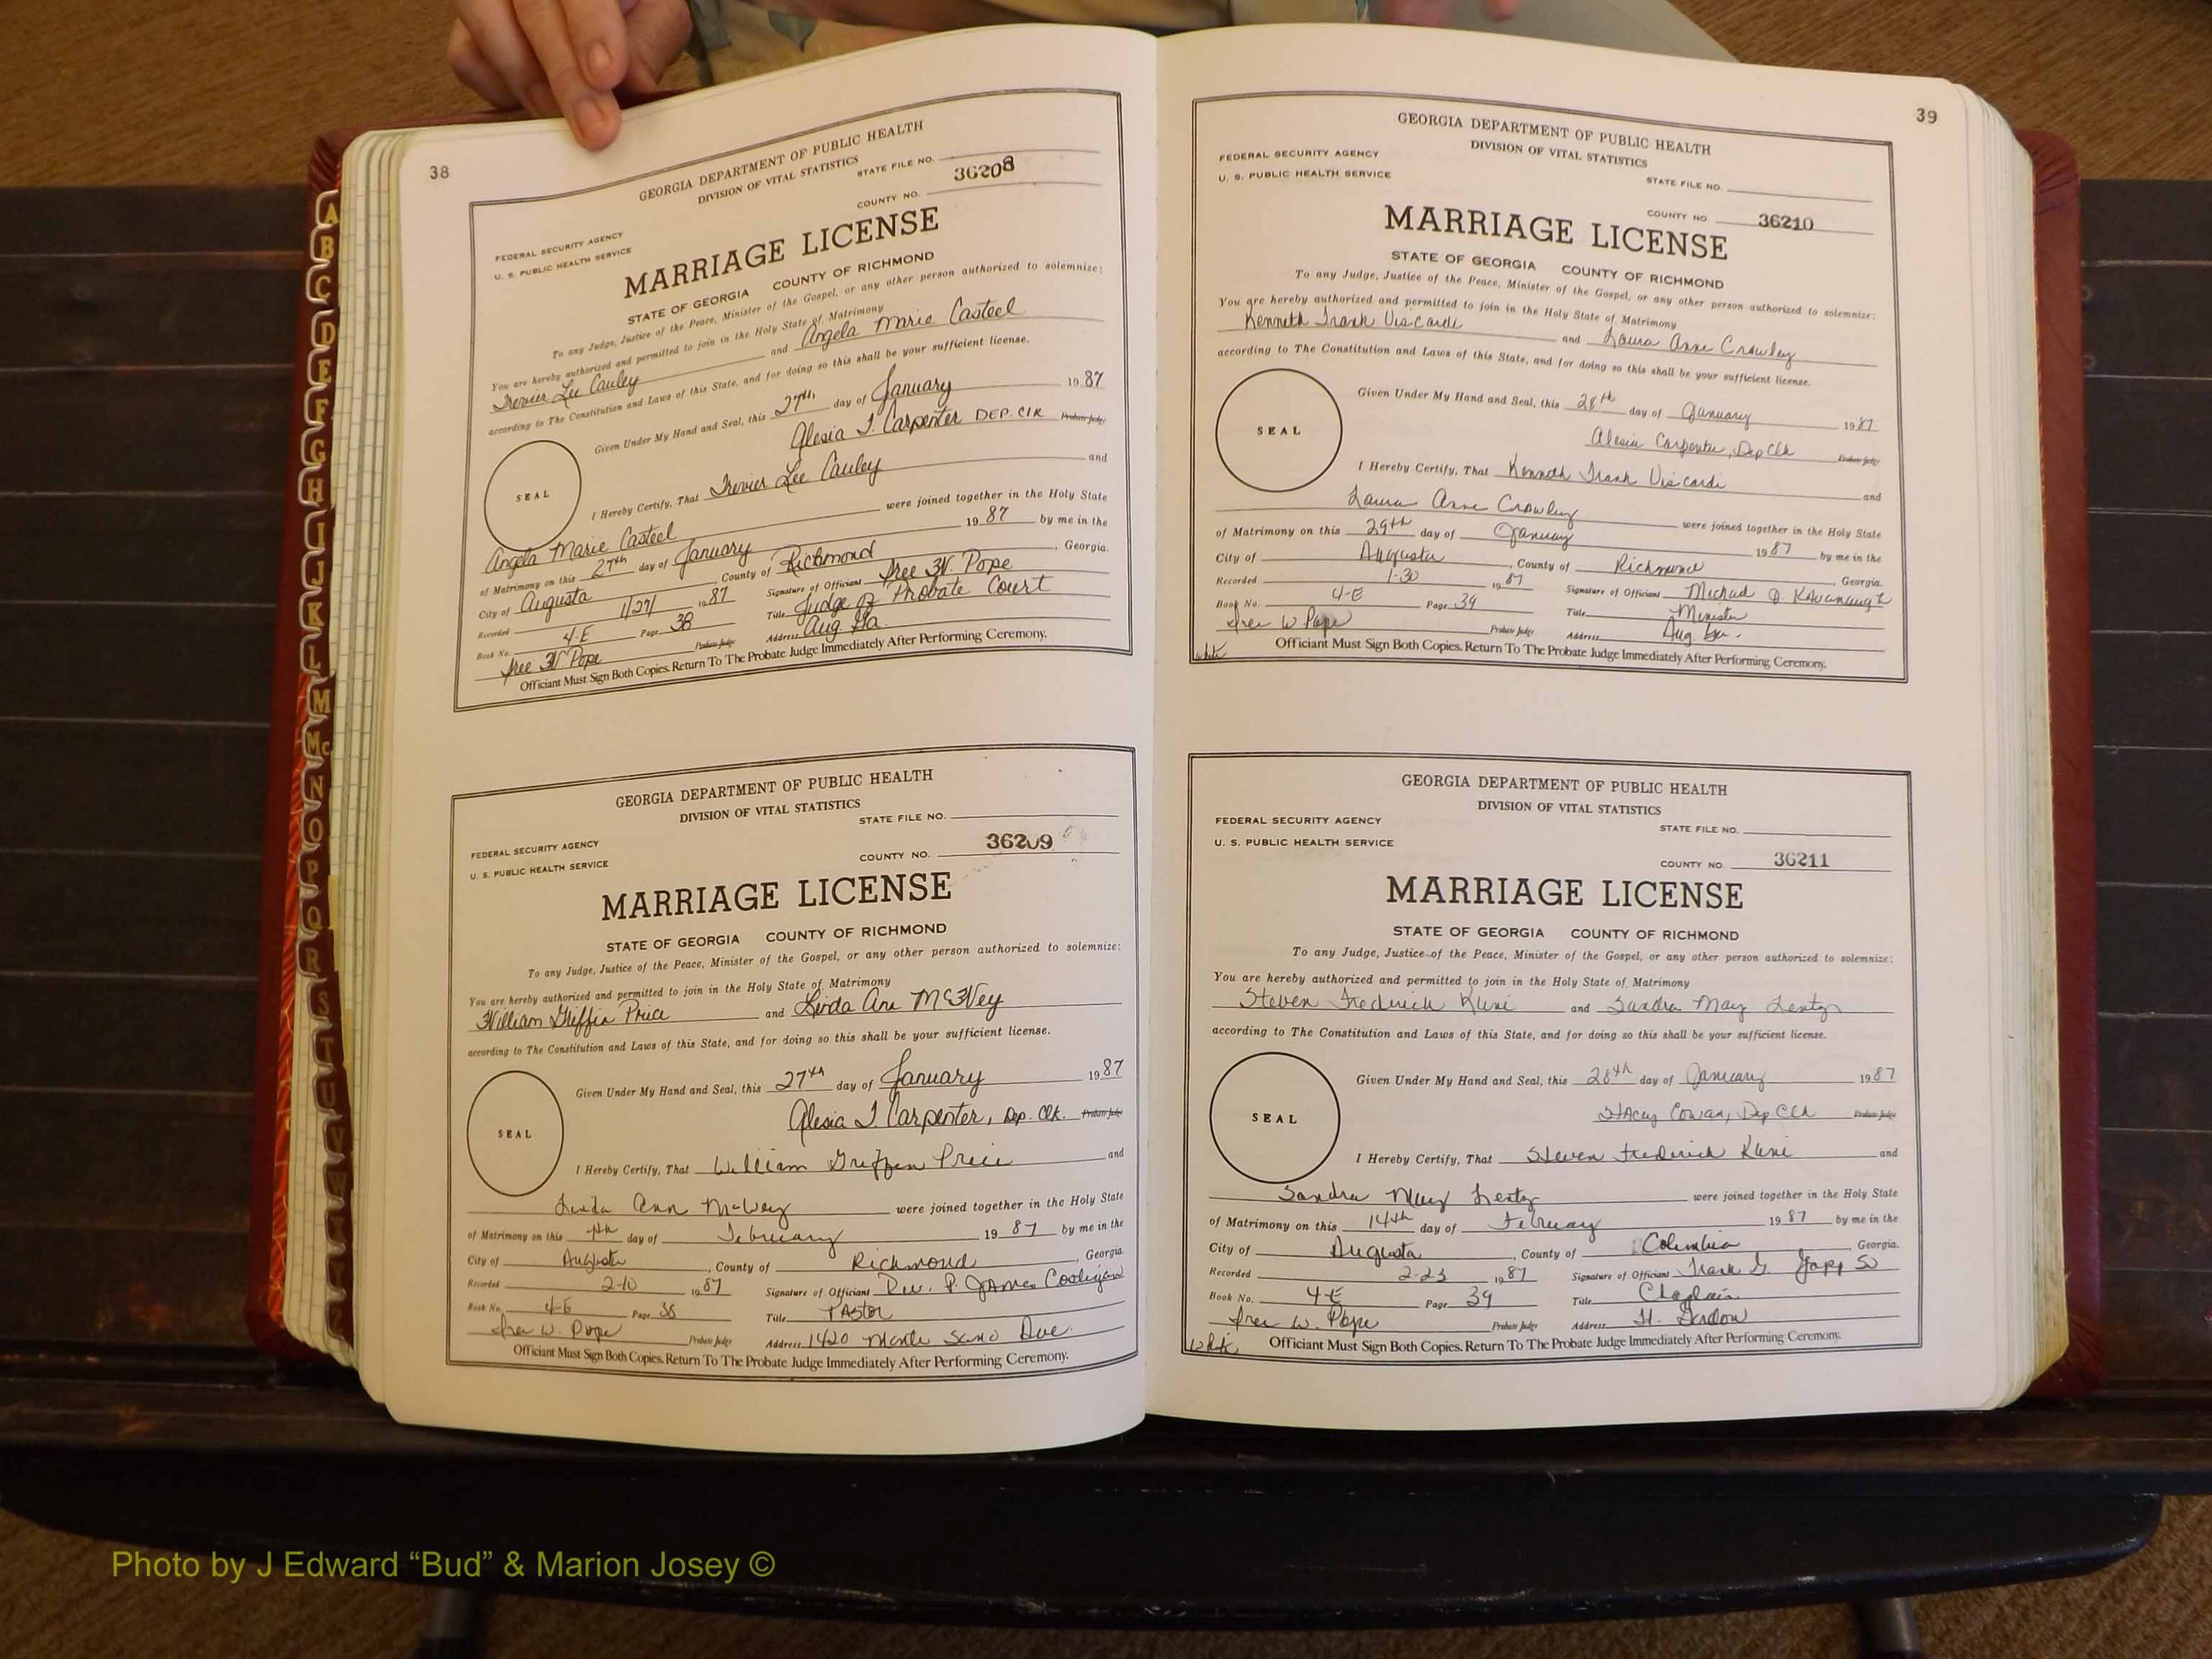 38
GEORGIA DEPARTMENT OF PUBLIC HEALTH
DIVISION OF VITAL STATISTICS
STATE FILE NO.
FEDERAL SECURITY AGENCY
U. S. PUBLIC HEALTH SERVICE
COUNTY NO. 36208
MARRIAGE LICENSE
STATE OF GEORGIA COUNTY OF RICHMOND
To any Judge, Justice of the Peace, Minister of the Gospel, or any other person authorized to solemnize:
You are hereby authorized and permitted to join in the Holy State of Matrimony
Trevier Lee Cauley and Angela Marie Casteel
according to The Constitution and Laws of this State, and for doing so this shall be your sufficient license.
Given Under My Hand and Seal, this 27th day of January 1987
Alesia T. Carpenter DEP. Clk Probate Judge
SEAL
I Hereby Certify, That Trevier Lee Cauley and
Angela Marie Casteel were joined together in the Holy State
of Matrimony on this 27th day of January 1987 by me in the
City of Augusta, County of Richmond, Georgia.
Recorded 1/27/ 1987 Signature of Officiant Iree W. Pope
Book No. 4-E Page 38 Title Judge of Probate Court
Iree W. Pope Probate Judge Address Aug. Ga.
Officiant Must Sign Both Copies. Return To The Probate Judge Immediately After Performing Ceremony.
GEORGIA DEPARTMENT OF PUBLIC HEALTH
DIVISION OF VITAL STATISTICS
STATE FILE NO.
FEDERAL SECURITY AGENCY
U. S. PUBLIC HEALTH SERVICE
COUNTY NO. 36209
MARRIAGE LICENSE
STATE OF GEORGIA COUNTY OF RICHMOND
To any Judge, Justice of the Peace, Minister of the Gospel, or any other person authorized to solemnize:
You are hereby authorized and permitted to join in the Holy State of Matrimony
William Griffin Price and Linda Ann McVey
according to The Constitution and Laws of this State, and for doing so this shall be your sufficient license.
Given Under My Hand and Seal, this 27th day of January 1987
Alesia T. Carpenter, Dep. Clk. Probate Judge
SEAL
I Hereby Certify, That William Griffin Price and
Linda Ann McVey were joined together in the Holy State
of Matrimony on this day of February 1987 by me in the
City of Augusta, County of Richmond, Georgia.
Recorded 2-10 1987 Signature of Officiant Rev. P. James Costigan
Book No. 4-E Page 38 Title PAstor
Iree W. Pope Probate Judge Address 1420 Monte Sano Ave.
Officiant Must Sign Both Copies. Return To The Probate Judge Immediately After Performing Ceremony.
39
GEORGIA DEPARTMENT OF PUBLIC HEALTH
DIVISION OF VITAL STATISTICS
FEDERAL SECURITY AGENCY
U. S. PUBLIC HEALTH SERVICE
STATE FILE NO.
COUNTY NO 36210
MARRIAGE LICENSE
STATE OF GEORGIA COUNTY OF RICHMOND
To any Judge, Justice of the Peace, Minister of the Gospel, or any other person authorized to solemnize:
You are hereby authorized and permitted to join in the Holy State of Matrimony
Kenneth Frank Viscardi and Laura Anne Crowley
according to The Constitution and Laws of this State, and for doing so this shall be your sufficient license.
Given Under My Hand and Seal, this 28th day of January 1987
Alesia Carpenter, Dep Clk Probate Judge
SEAL
I Hereby Certify, That Kenneth Frank Viscardi and
Laura Anne Crowley were joined together in the Holy State
of Matrimony on this 29th day of January 1987 by me in the
City of Augusta, County of Richmond, Georgia.
Recorded 1-30 1987 Signature of Officiant Michael J. Kavanaugh
Book No. 4-E Page 39 Title Minister
Iree W Pope Probate Judge Address Aug. Ga.
white Officiant Must Sign Both Copies. Return To The Probate Judge Immediately After Performing Ceremony.
GEORGIA DEPARTMENT OF PUBLIC HEALTH
DIVISION OF VITAL STATISTICS
FEDERAL SECURITY AGENCY
STATE FILE NO.
U. S. PUBLIC HEALTH SERVICE
COUNTY NO. 36211
MARRIAGE LICENSE
STATE OF GEORGIA COUNTY OF RICHMOND
To any Judge, Justice of the Peace, Minister of the Gospel, or any other person authorized to solemnize:
You are hereby authorized and permitted to join in the Holy State of Matrimony
Steven Frederick Kuni and Sandra May Lentz
according to The Constitution and Laws of this State, and for doing so this shall be your sufficient license.
Given Under My Hand and Seal, this 28th day of January 1987
Stacey Cowan, Dep Clk Probate Judge
SEAL
I Hereby Certify, That Steven Frederick Kuni and
Sandra May Lentz were joined together in the Holy State
of Matrimony on this 14th day of February 1987 by me in the
City of Augusta, County of Columbia, Georgia.
Recorded 2-23 1987 Signature of Officiant Frank G.
Book No. 4-E Page 39 Title Chaplain
Iree W. Pope Probate Judge Address Ft. Gordon
White Officiant Must Sign Both Copies. Return To The Probate Judge Immediately After Performing Ceremony.
A
B
C
D
E
F
G
H
I
J
K
L
M
Mc
N
O
P
Q
R
S
T
U
V
W
Photo by J Edward “Bud” & Marion Josey ©